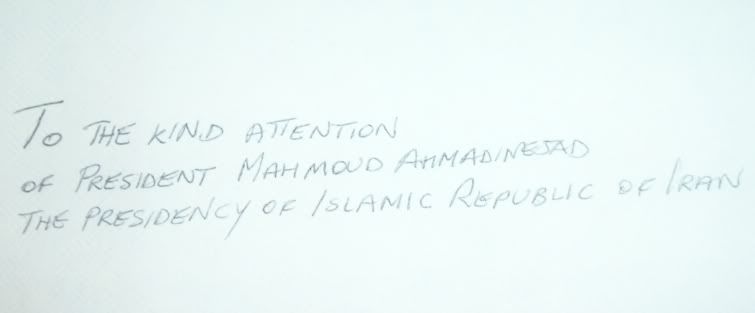 To THE KIND ATTENTION
OF PRESIDENT MAHMOUD AHMADINEJAD
THE PRESIDENCY OF ISLAMIC REPUBLIC OF IRAN